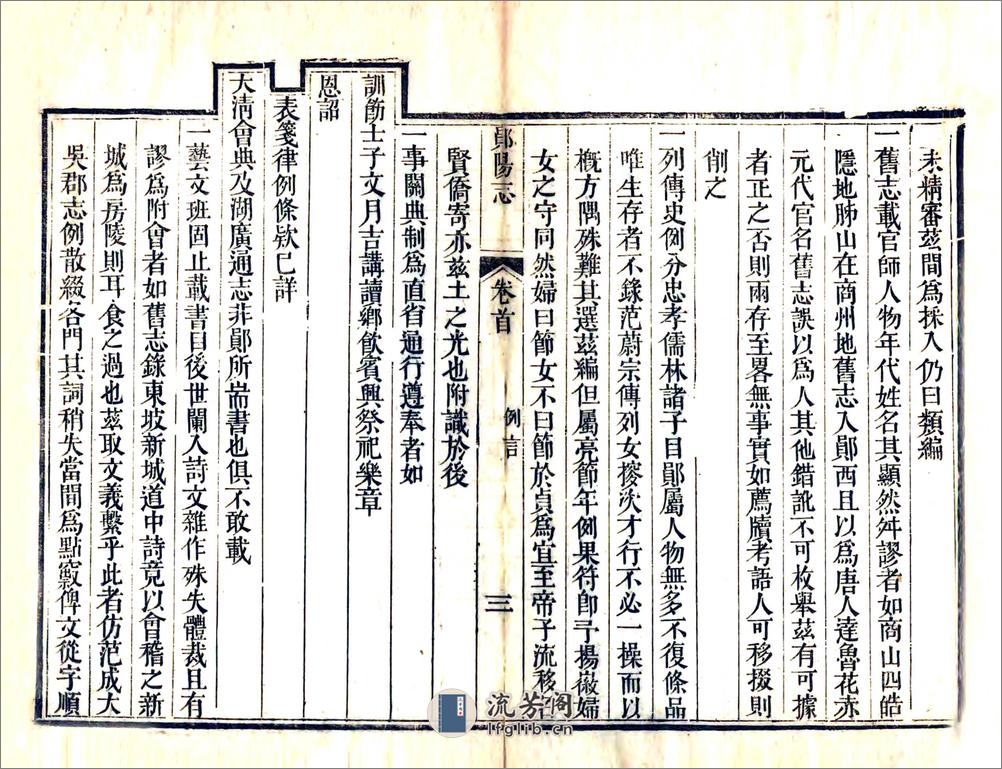 未精審茲間爲採入仍曰類編
一舊志載官師人物年代姓名其顯然舛謬者如商山四皓
隱地肺山在商州地舊志入鄖西且以爲唐人達魯花赤
元代官名舊志誤以爲人其他錯訛不可枚舉茲有可據
者正之否則兩存至畧無事實如薦牘考語人可移掇則
削之
一列傳史例分忠孝儒林諸子目鄖屬人物無多不復條品
唯生存者不錄范蔚宗傳列女搂次才行不必一操而以
槪方隅殊難其選茲編但屬亮節年例果符卽予揚徽婦
女之守同然婦曰節女不曰節於貞爲宜至帝子流移名
鄖陽志
卷首
例言
三
賢僑寄亦茲土之光也附識於後
一事關典制爲直省通行遵奉者如
訓飭士子文月吉講讀鄉飮賓興祭祀樂章
恩詔
表箋律例條欵已詳
大淸會典及湖廣通志非鄖所耑書也俱不敢載
一藝文班固止載書目後世闌入詩文雜作殊失體裁且有
謬爲附會者如舊志錄東坡新城道中詩竟以會稽之新
城爲房陵則耳食之過也茲取文義繫乎此者仿范成大
吳郡志例散綴各門其詞稍失當間爲點竄俾文從字順
流芳阁
lfglib.cn